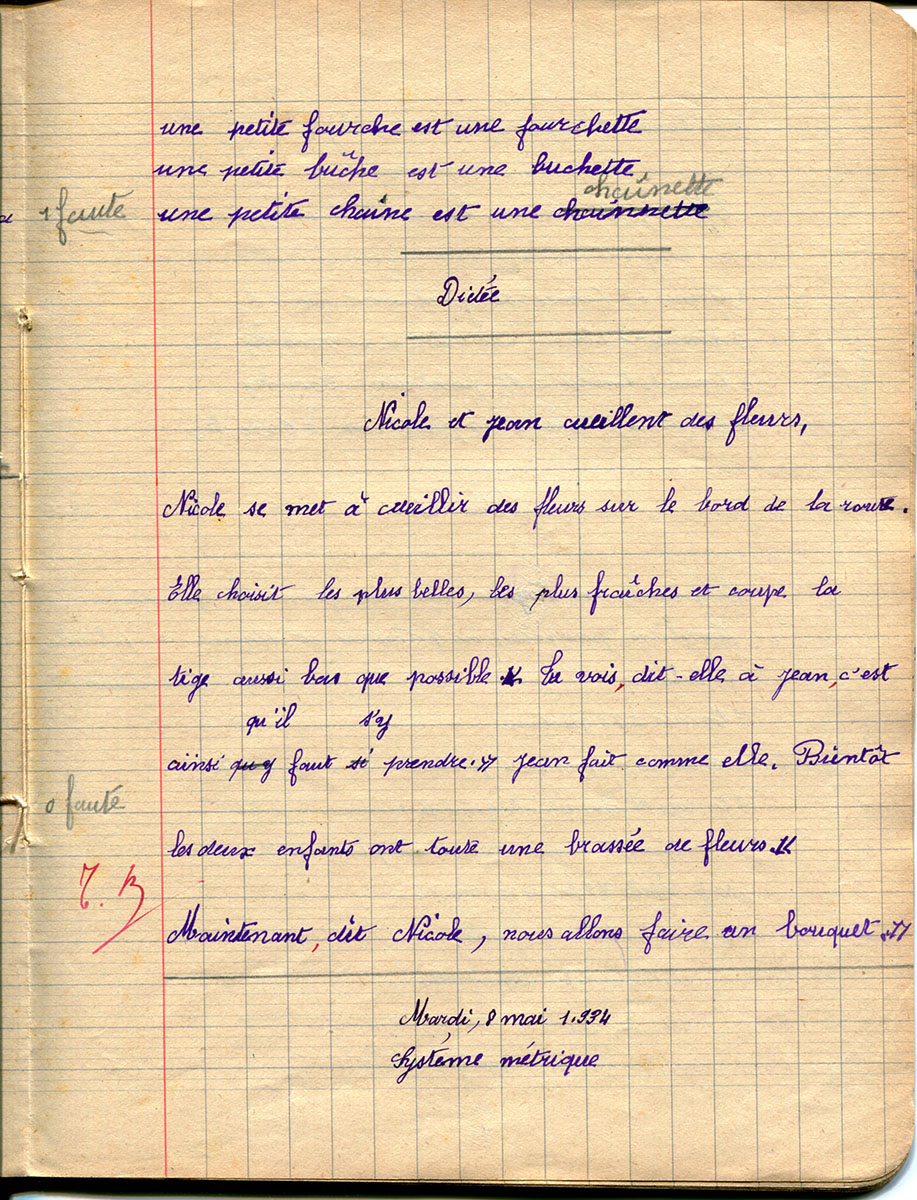 une petite fourche est une fourchette
une petite bûche est une buchette
chaînette
1 faute
une petite chaine est une chaînnette
Dictée
Nicole et jean cueillent des fleurs,
Nicole se met à cueillir des fleurs sur le bord de la route.
Elle choisit les plus belles, les plus fraîches et coupe la
tige aussi bas que possible. « Tu vois, dit-elle à jean, c'est
qu'il s'y
ainsi qu y faut si prendre. » jean fait comme elle. Bientôt
0 faute
les deux enfants ont toute une brassée de fleurs. «
T. B
Maintenant, dit Nicole, nous allons faire un bouquet. »
Mardi, 8 mai 1.934
Système métrique